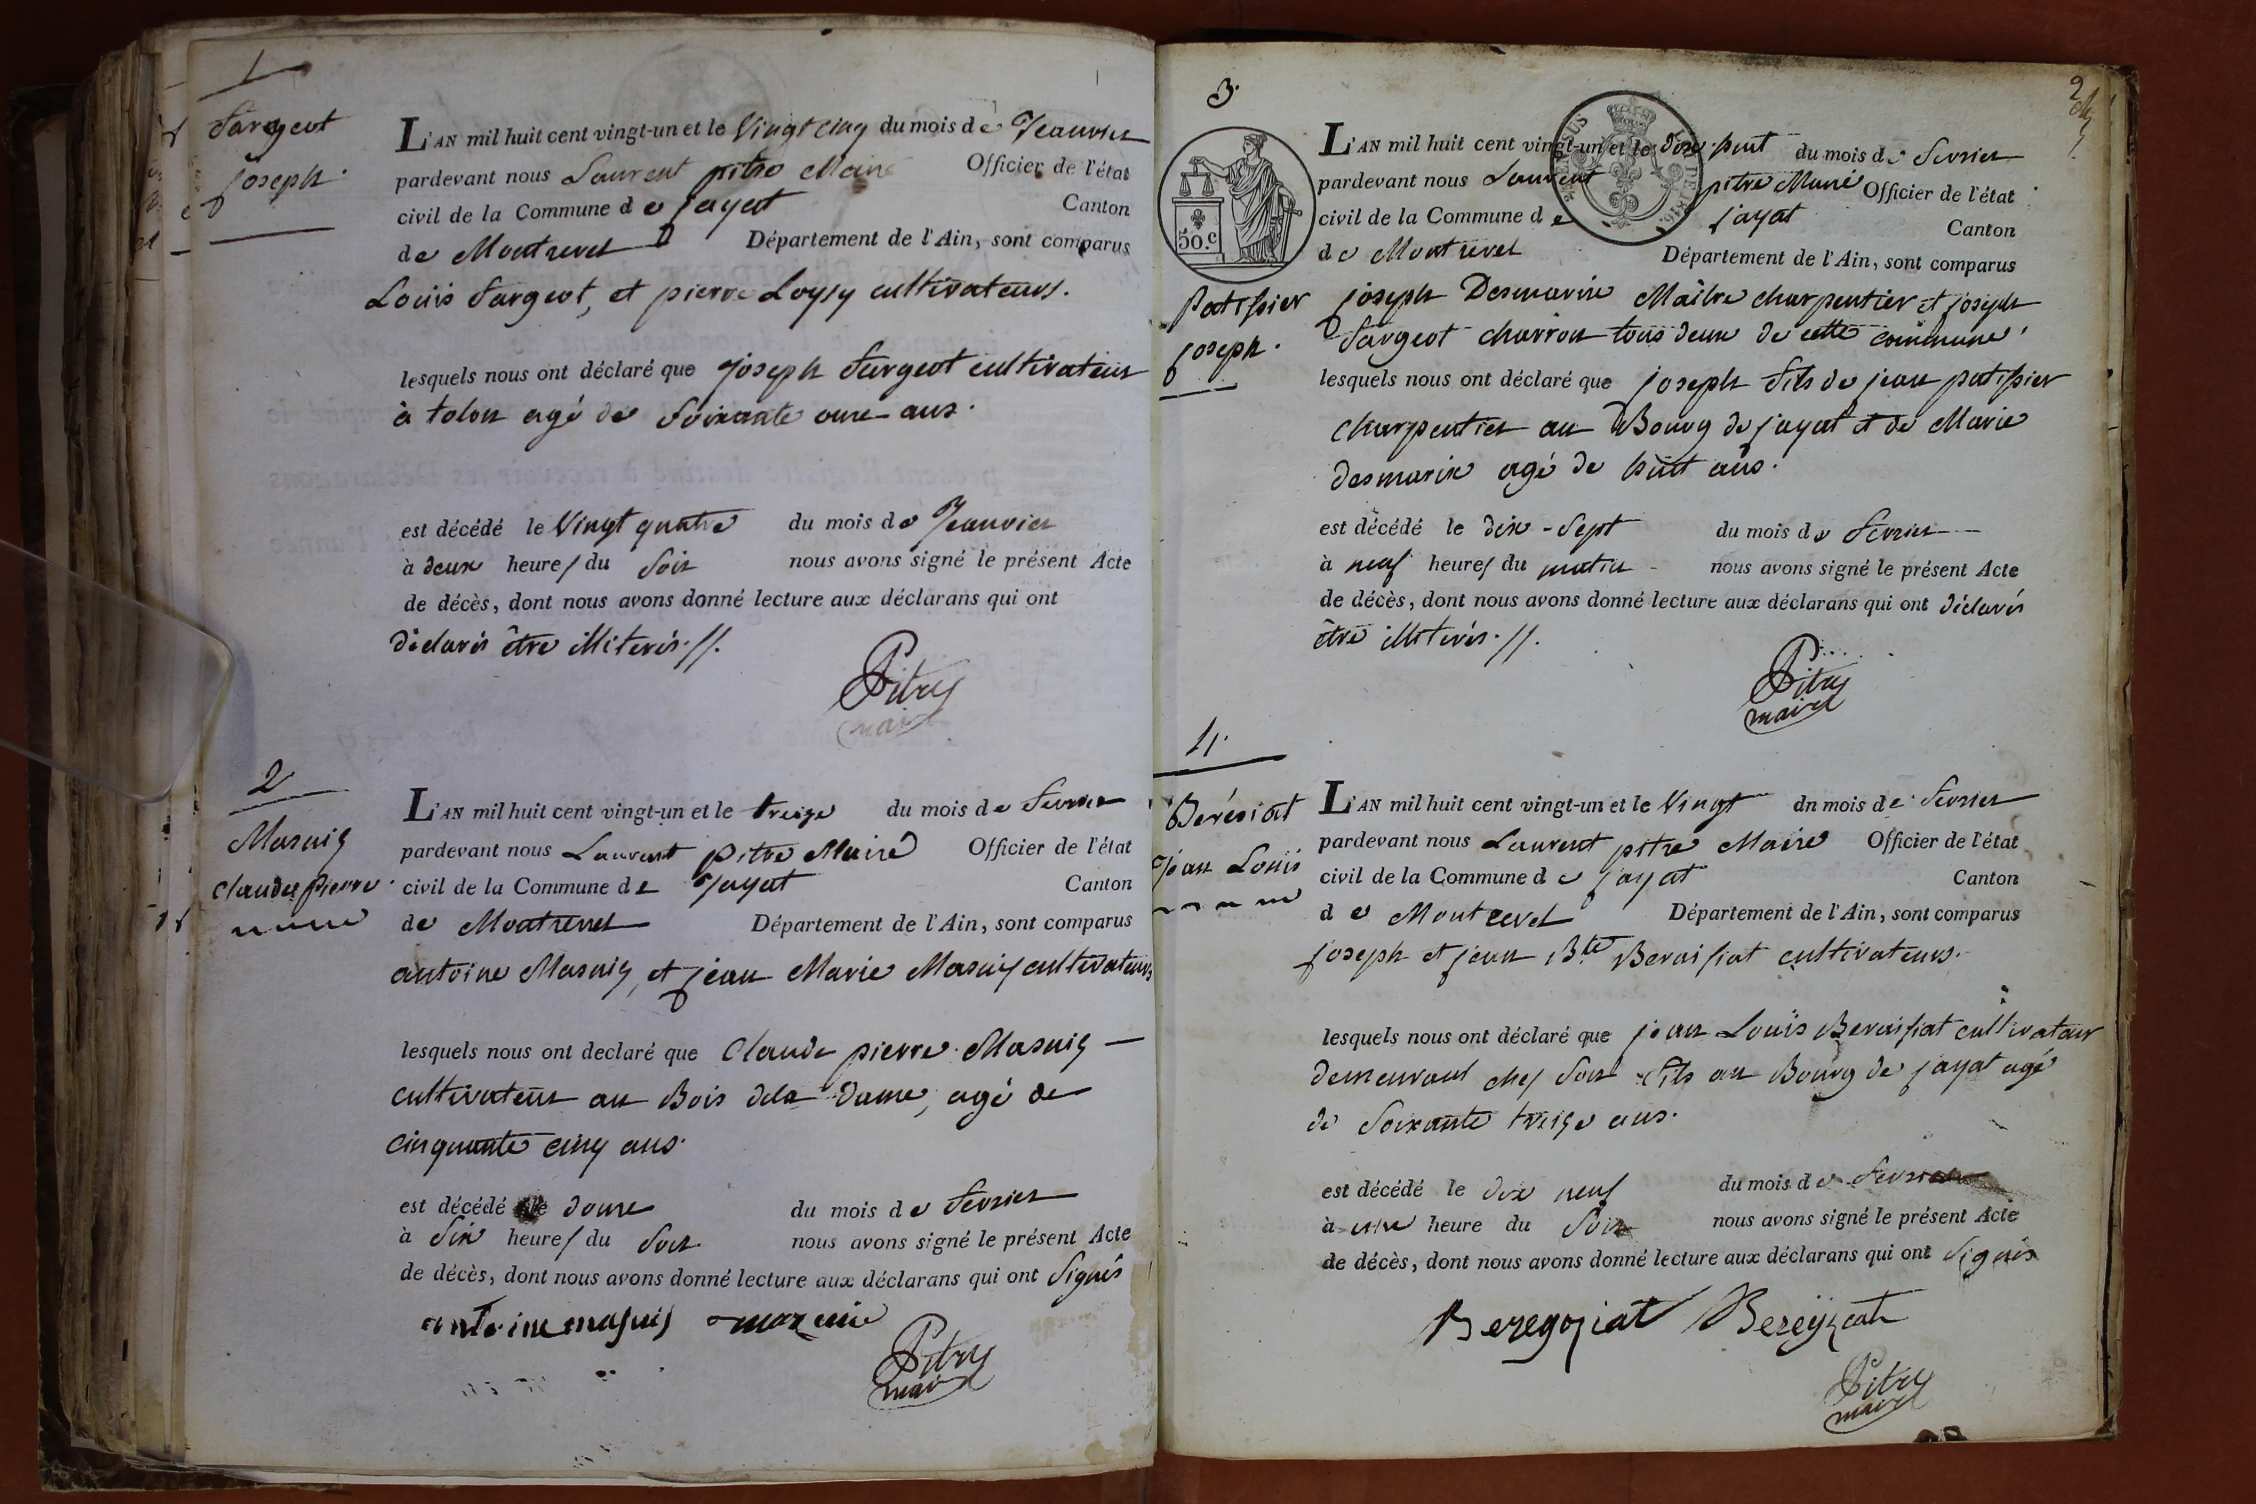 1
Fargeot
joseph.
L'AN mil huit cent vingt-un et le Vingt cinq du mois de Jeanvier
pardevant nous Laurent pitre Maire Officier de l'état
civil de la Commune de jayat Canton
de Montrevel Département de l'Ain, sont comparus
Louis Fargeot, et pierre Loysy cultivateurs.
lesquels nous ont déclaré que joseph Fargeot cultivateur
à tolon agé de Soixante onze ans.
est décédé le Vingt quatre du mois de Jeanvier
à deux heures du Soir nous avons signé le présent Acte
de décès, dont nous avons donné lecture aux déclarans qui ont
déclarés être illiterés.//.
Pitre
maire
2
Masuiy
Claude pierre.
L'AN mil huit cent vingt-un et le treize du mois de Fevrier
pardevant nous Laurent pitre Maire Officier de l'état
civil de la Commune de Jayat Canton
de Montrevel Département de l'Ain, sont comparus
antoine Masuiy, et jean Marie Masuiy cultivateurs
lesquels nous ont declaré que Claude pierre Masuiy
cultivateur au Bois dela Dame, agé de
cinquante cinq ans.
est décédé le douze du mois de Fevrier
à Six heures du Soir. nous avons signé le présent Acte
de décès, dont nous avons donné lecture aux déclarans qui ont Signés
antoine masuis
Pitre
maire
2
3.
50.c
Patissier
joseph.
L'AN mil huit cent vingt-un et le du mois de Fevrier
pardevant nous Laurent pitre Maire Officier de l'état
civil de la Commune de jayat Canton
de Montrevel Département de l'Ain, sont comparus
joseph Desmarix Maître charpentier et joseph
Fargeot charron tous deux de cette commune
lesquels nous ont déclaré que joseph fils de jean patissier
charpentier au Bourg de jayat et de Marie
desmarix agé de huit ans.
est décédé le dix-Sept du mois de Fevrier
à neuf heures du matin nous avons signé le présent Acte
de décès, dont nous avons donné lecture aux déclarans qui ont déclarés
être illiterés.//.
Pitre
maire
4.
Berésiat
Jean Louis
L'AN mil huit cent vingt-un et le Vingt dn mois de Fevrier
pardevant nous Laurent pitre Maire Officier de l'état
civil de la Commune de jayat Canton
de Montrevel Département de l'Ain, sont comparus
joseph et jean Bte Beraisiat cultivateurs.
lesquels nous ont déclaré que jean Louis Beraisiat cultivateur
demeurant chez Son Fils au Bourg de jayat agé
de Soixante treize ans.
est décédé le dix neuf du mois de Fevrier
à une heure du Soir nous avons signé le présent Acte
de décès, dont nous avons donné lecture aux déclarans qui ont Signés
Beregoziat Bereyziat
Pitre
maire